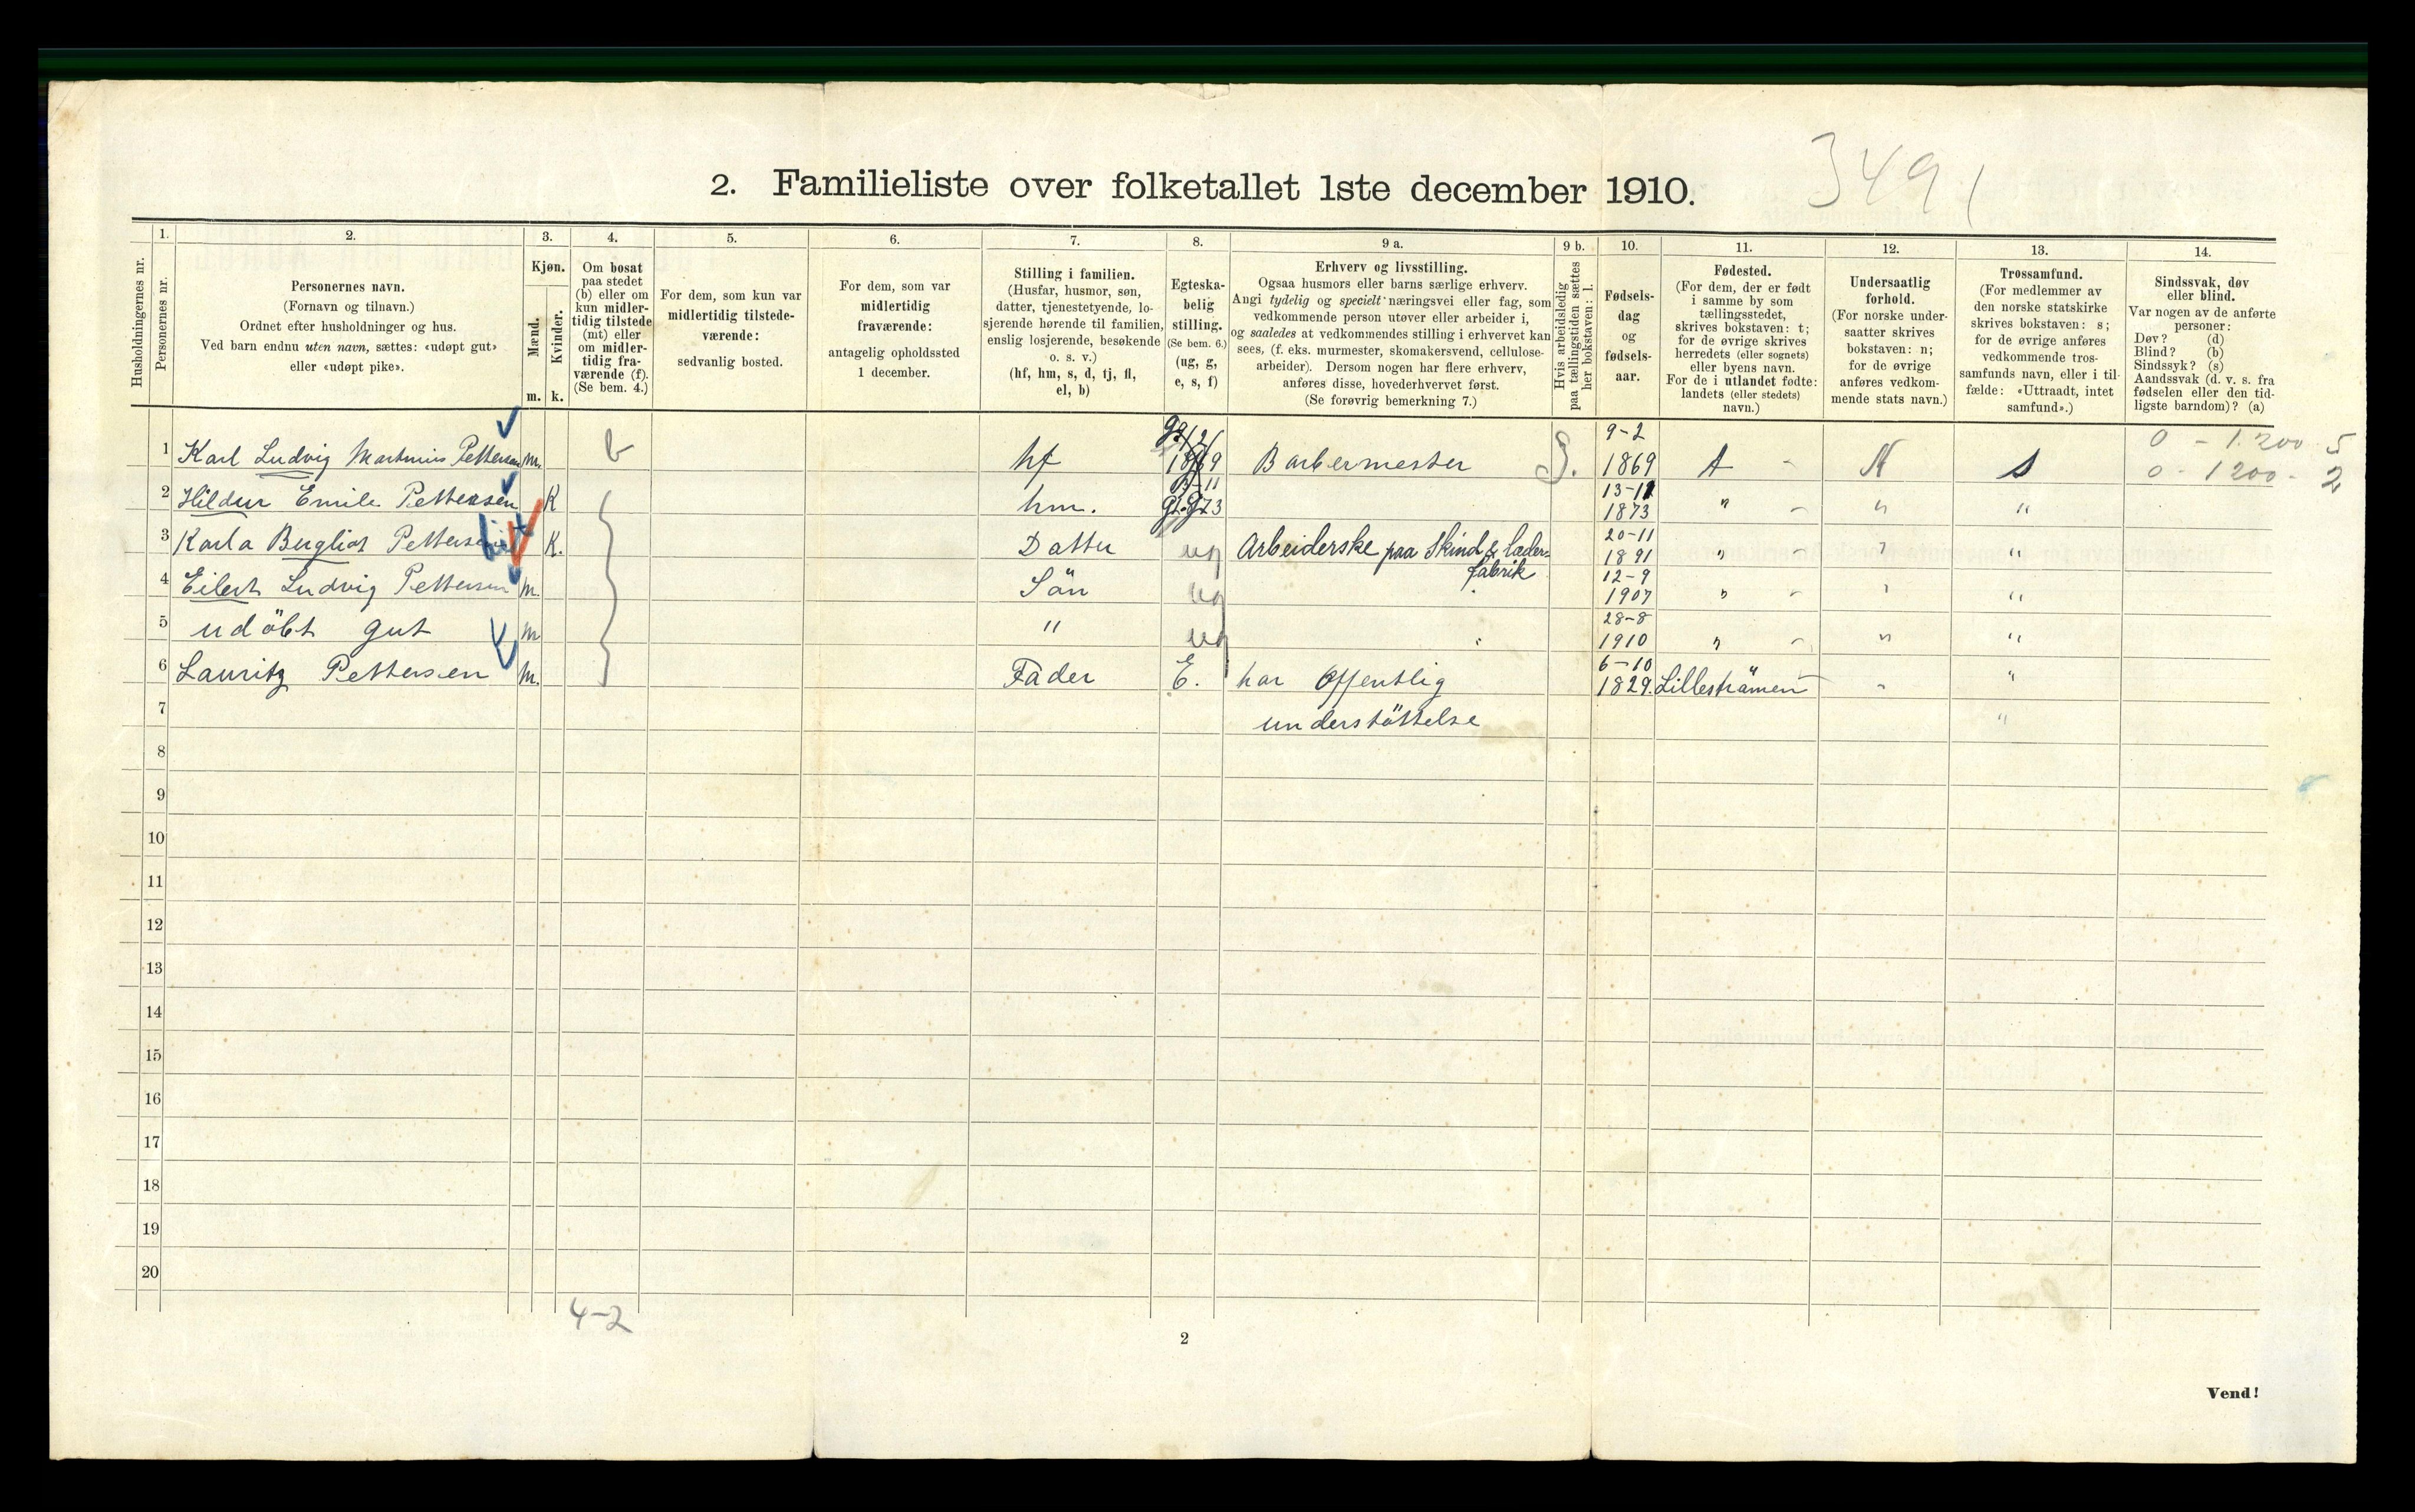 3491
2. Familieliste over folketallet 1ste december 1910.
1. 2. 3. 4. 5. 6. 7. 8. 9 a. 9 b. 10. 11. 12. 13. 14.
Husholdningernes nr.
Personernes nr.
Personernes navn.
(Fornavn og tilnavn.)
Ordnet efter husholdninger og hus.
Ved barn endnu uten navn, sættes: «udøpt gut»
eller «udøpt pike».
Kjøn.
Mænd.
Kvinder.
m. k.
Om bosat
paa stedet
(b) eller om
kun midler-
tidig tilstede
(mt) eller
om midler-
tidig fra-
værende (f).
(Se bem. 4.)
For dem, som kun var
midlertidig tilstede-
værende:
sedvanlig bosted.
For dem, som var
midlertidig
fraværende:
antagelig opholdssted
1 december.
Stilling i familien.
(Husfar, husmor, søn,
datter, tjenestetyende, lo-
sjerende hørende til familien,
enslig losjerende, besøkende
o. s. v.)
(hf, hm, s, d, tj, fl,
el, b)
Egteska-
belig
stilling.
(Se bem. 6.)
(ug, g,
e, s, f)
Erhverv og livsstilling.
Ogsaa husmors eller barns særlige erhverv.
Angi tydelig og specielt næringsvei eller fag, som
vedkommende person utøver eller arbeider i,
og saaledes at vedkommendes stilling i erhvervet kan
sees, (f. eks. murmester, skomakersvend, cellulose-
arbeider). Dersom nogen har flere erhverv,
anføres disse, hovederhvervet først.
(Se forøvrig bemerkning 7.)
Hvis arbeidsledig
paa tællingstiden sættes
her bokstaven: l.
Fødsels-
dag
og
fødsels-
aar.
Fødested.
(For dem, der er født
i samme by som
tællingsstedet,
skrives bokstaven: t;
for de øvrige skrives
herredets (eller sognets)
eller byens navn.
For de i utlandet fødte:
landets (eller stedets)
navn.)
Undersaatlig
forhold.
(For norske under-
saatter skrives
bokstaven: n;
for de øvrige
anføres vedkom-
mende stats navn.)
Trossamfund.
(For medlemmer av
den norske statskirke
skrives bokstaven: s;
for de øvrige anføres
vedkommende tros-
samfunds navn, eller i til-
fælde: «Uttraadt, intet
samfund».)
Sindssvak, døv
eller blind.
Var nogen av de anførte
personer:
Døv? (d)
Blind? (b)
Sindssyk? (s)
Aandssvak (d. v. s. fra
fødselen eller den tid-
ligste barndom)? (a)
1 Karl Ludvig Martinius Pettersen m. b hf g 1869 Barbermester 9-2 1869 t - N s 0 - 1200 5
0 - 1200 - 2
2 Hildur Emile Pettersen K hm. g 13-11 1873 " - " "
3 Karla Bergliot Pettersen K. Datter ug Arbeiderske paa Skind & læder-
fabrik 20-11 1891 " - " "
4 Eilert Ludvig Pettersen m. Sön ug 12-9 1907 " - " "
5 udöbt gut m " ug 28-8 1910 " - " "
6 Lauritz Pettersen m. Fader E. har Offentlig 6-10 1829. Lilleströmen " "
7 understöttelse "
8
9
10
11
12
13
14
15
16
17
18
19
20
4-2
2
Vend!